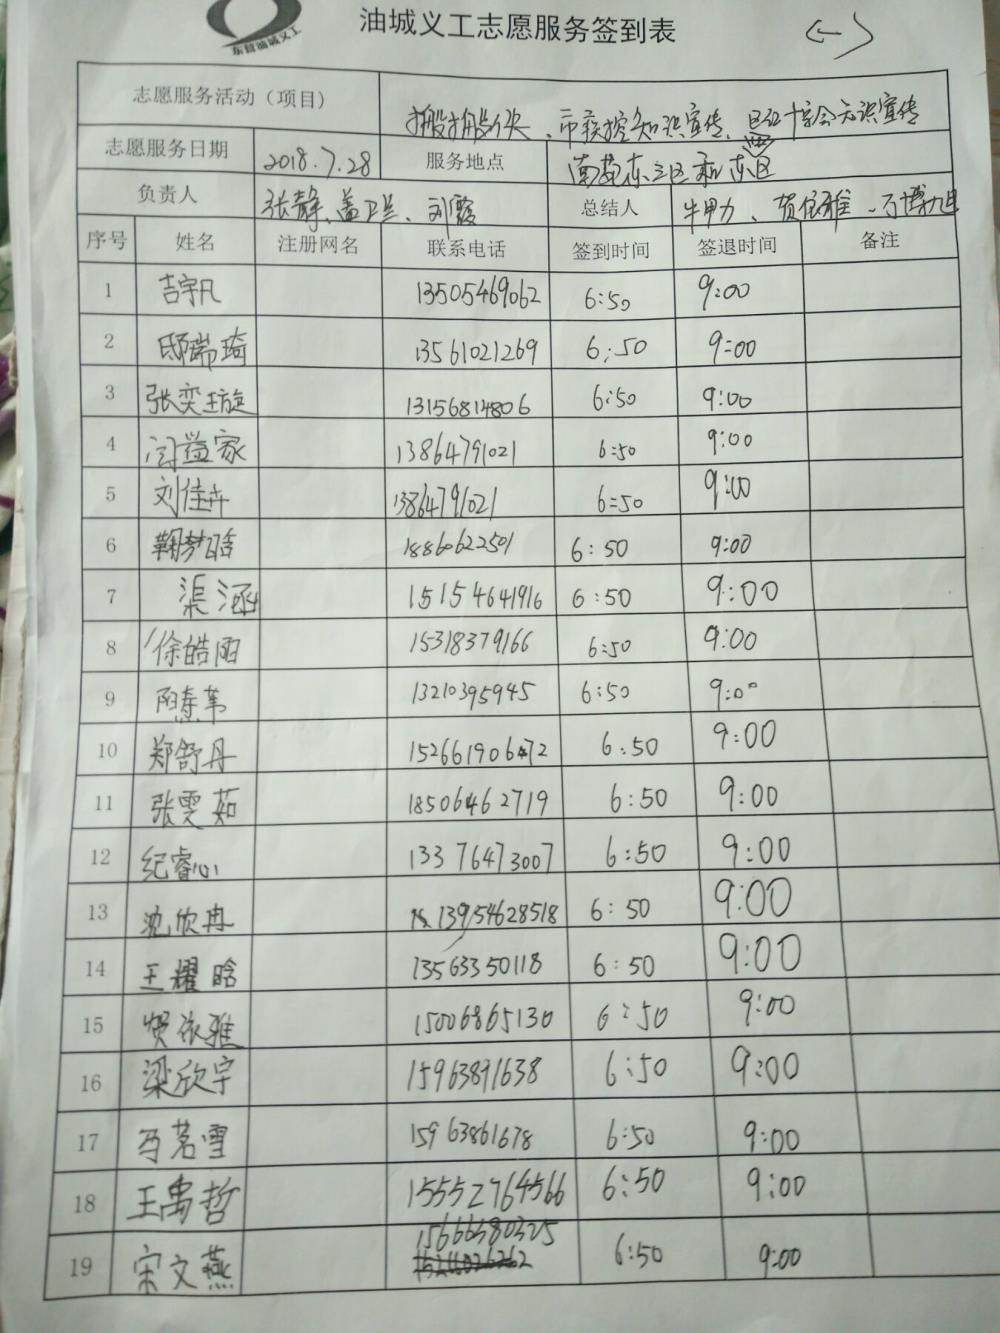 东营油城义工
油城义工志愿服务签到表
志愿服务活动（项目）
、市疾控知识宣传、
志愿服务日期 2018.7.28 服务地点 南苑东三区和东区
负责人 张静、盖卫兰、刘霞 总结人 牛甲力、贺依雅、
序号 姓名 注册网名 联系电话 签到时间 签退时间 备注
1 吉宇凡 13505469062 6:50 9:00
2 邸瑞琦 13561021269 6:50 9:00
3 张奕璇 13156814806 6:50 9:00
4 闫益家 13864791021 6:50 9:00
5 刘佳卉 13864791021 6:50 9:00
6 鞠梦晗 18860622501 6:50 9:00
7 渠涵 15154641916 6:50 9:00
8 徐皓阳 15318379166 6:50 9:00
9 13210395945 6:50 9:00
10 郑舒丹 6:50 9:00
11 张雯茹 18506462719 6:50 9:00
12 纪睿心 13376473007 6:50 9:00
13 沈欣冉 13954628518 6:50 9:00
14 王耀晗 13563350118 6:50 9:00
15 贺依雅 15006865130 6:50 9:00
16 梁欣宇 15963891638 6:50 9:00
17 马茗雪 15963861678 6:50 9:00
18 王禹哲 15552764566 6:50 9:00
19 宋文燕 15666380325 6:50 9:00